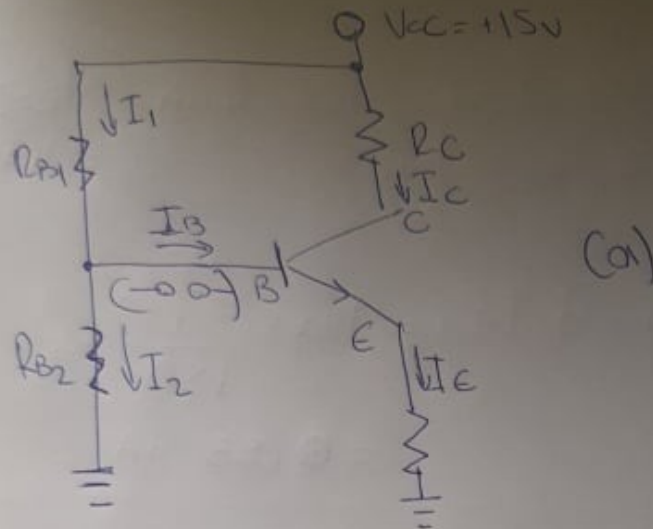 VCC = +15V
I1
RB1
RC
IC
C
IB
(a)
B
E
RB2
I2
IE